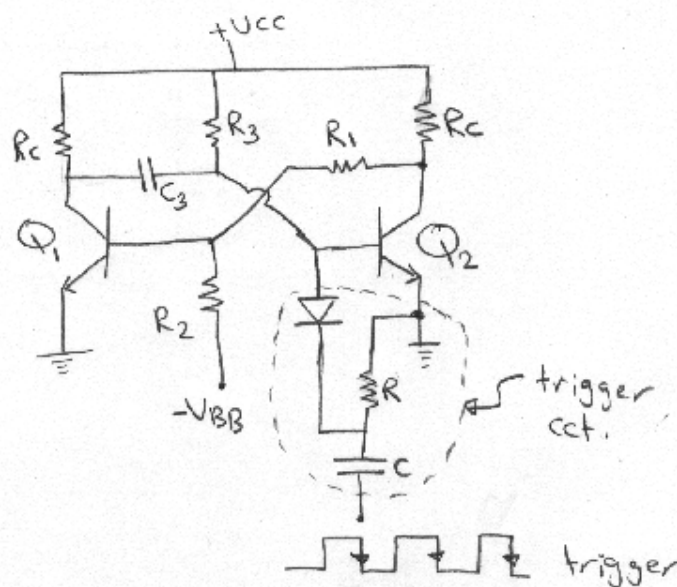 +Vcc
Rc
R3
R1
Rc
C3
Q1
Q2
R2
-VBB
R
C
trigger
cct.
trigger